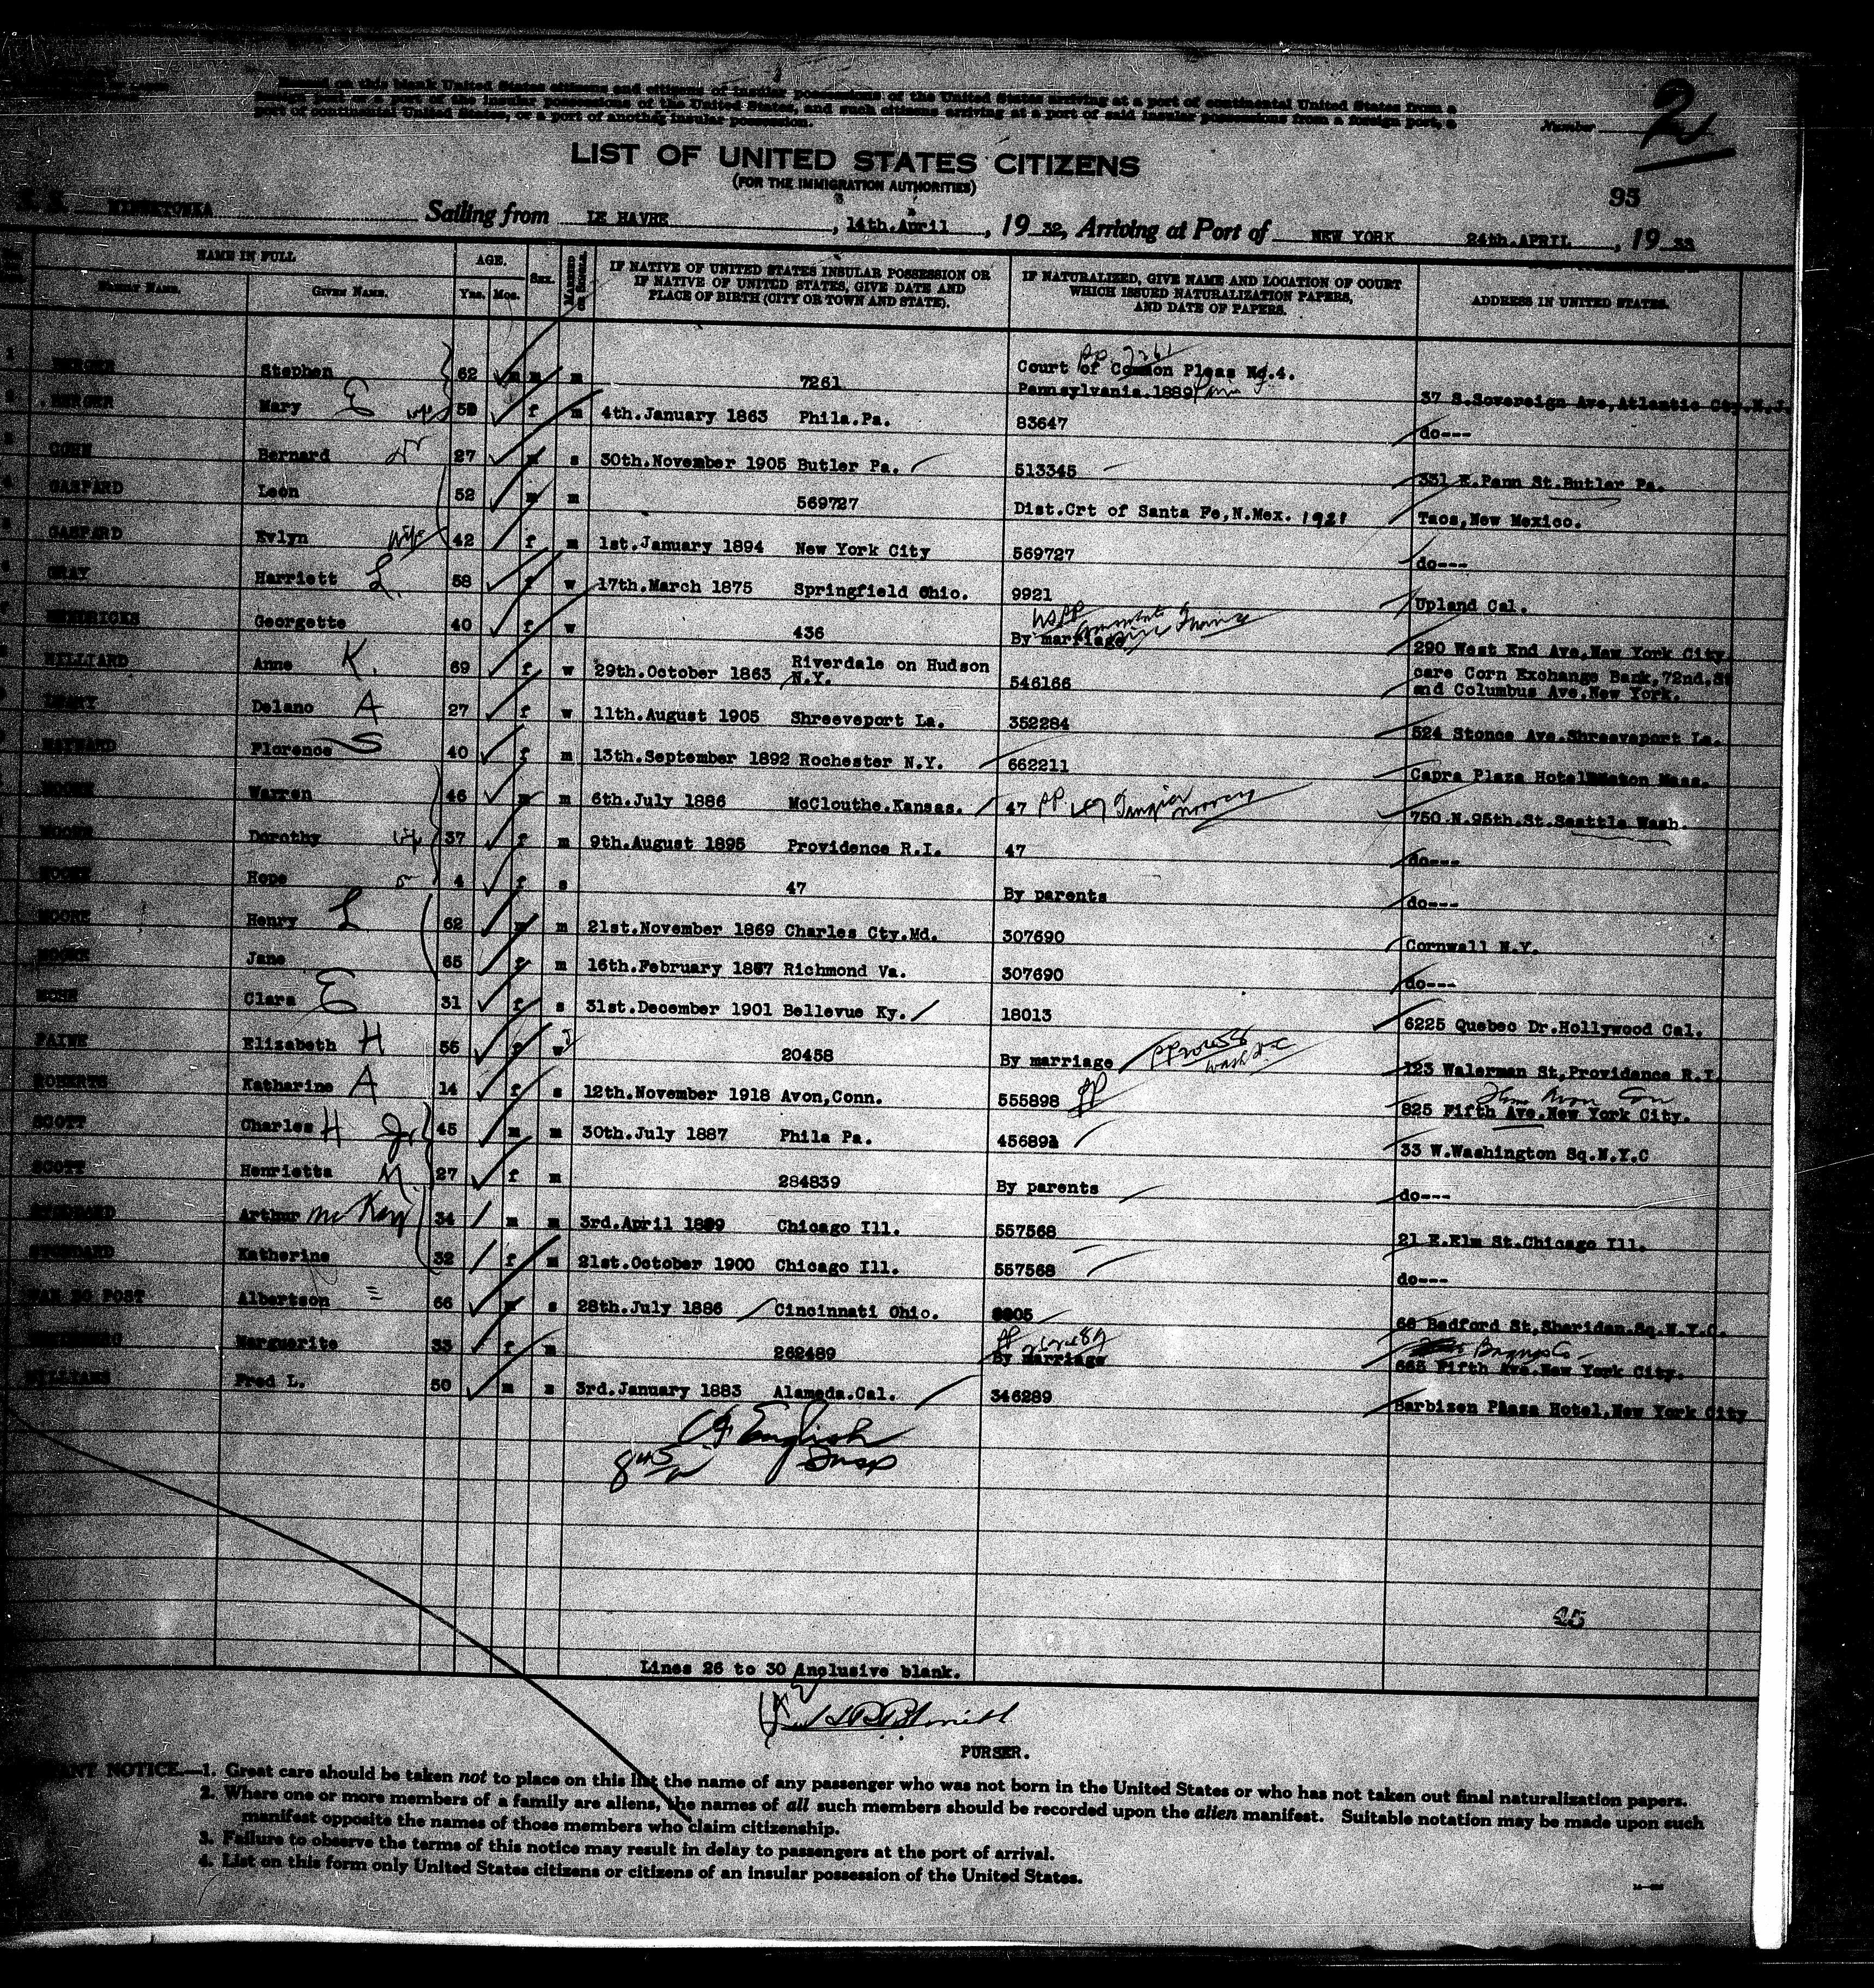 port of continental United States, or a port of another insular possession.
Number 2
LIST OF UNITED STATES CITIZENS
(FOR THE IMMIGRATION AUTHORITIES)
93
S. S. MINNETONKA Sailing from LE HAVRE, 14th.April, 19 32, Arriving at Port of NEW YORK 24th.APRIL, 19 33
NAME IN FULL AGE. SEX. MARRIED OR SINGLE. IF NATIVE OF UNITED STATES INSULAR POSSESSION OR IF NATIVE OF UNITED STATES, GIVE DATE AND PLACE OF BIRTH (CITY OR TOWN AND STATE). IF NATURALIZED, GIVE NAME AND LOCATION OF COURT WHICH ISSUED NATURALIZATION PAPERS, AND DATE OF PAPERS. ADDRESS IN UNITED STATES.
FAMILY NAME. GIVEN NAME. Yrs. Mos.
1 BERGER Stephen 62 m m 7261 Court of Common Pleas No.4. Pennsylvania.1889 37 S.Sovereign Ave,Atlantic Cty.N.J.
2 BERGER Mary E wife 59 f m 4th.January 1863 Phila.Pa. 83647 do---
3 Bernard 27 m s 30th.November 1905 Butler Pa. 513345 331 E.Penn St.Butler Pa.
4 GASPARD Leon 52 m m 569727 Dist.Crt of Santa Fe,N.Mex. 1921 Taos,New Mexico.
5 GASPARD Evlyn wife 42 f m 1st.January 1894 New York City 569727 do---
6 GRAY Harriett L. 58 f w 17th.March 1875 Springfield Ohio. 9921 Upland Cal.
7 HENDRICKS Georgette 40 f w 436 By marriage 290 West End Ave,New York City.
HELLIARD Anne K. 69 f w 29th.October 1863 Riverdale on Hudson N.Y. 546166 care Corn Exchange Bank,72nd.St and Columbus Ave.New York.
Delano A 27 f w 11th.August 1905 Shreeveport La. 352284 524 Stonce Ave.Shreeveport La.
MAYNARD Florence S 40 f m 13th.September 1892 Rochester N.Y. 662211 Capra Plaza Hotel Mass.
MOORE Warren 46 m m 6th.July 1886 McClouthe.Kansas. 47 PP 47 Tangier Morocco 750.N.95th.St.Seattle Wash.
MOORE Dorothy 37 f m 9th.August 1895 Providence R.I. 47 do---
MOORE Hope 4 f s 47 By parents do---
MOORE Henry L 62 m m 21st.November 1869 Charles Cty.Md. 307690 Cornwall N.Y.
MOORE Jane 65 f m 16th.February 1867 Richmond Va. 307690 do---
Clara E 31 f s 31st.December 1901 Bellevue Ky. 18013 6225 Quebec Dr.Hollywood Cal.
PAINE Elizabeth H 56 f w 20458 By marriage PP 20458 Wash D.C 123 Walerman St,Providence R.I.
ROBERTS Katharine A 14 f s 12th.November 1918 Avon,Conn. 555898 PP 825 Fifth Ave.New York City.
SCOTT Charles H Jr 45 m m 30th.July 1887 Phila Pa. 456892 33 W.Washington Sq.N.Y.C
SCOTT Henrietta M. 27 f m 284839 By parents do---
STODDARD Arthur McKay 34 m m 3rd.April 1899 Chicago Ill. 557568 21 E.Elm St.Chicago Ill.
STODDARD Katherine 32 f m 21st.October 1900 Chicago Ill. 557568 do---
Albertson 66 m s 28th.July 1886 Cincinnati Ohio. 66 Bedford St,Sheridan.Sq.N.Y.C.
Marguerite 33 f m 262489 By marriage 665 Fifth Ave.New York City.
WILLIAMS Fred L. 50 m s 3rd.January 1883 Alameda.Cal. 346289 Barbizen Plaza Hotel,New York City
English
Insp
25
Lines 26 to 30 Anclusive blank.
PURSER.
NOTICE.—1. Great care should be taken not to place on this list the name of any passenger who was not born in the United States or who has not taken out final naturalization papers.
2. Where one or more members of a family are aliens, the names of all such members should be recorded upon the alien manifest. Suitable notation may be made upon such
manifest opposite the names of those members who claim citizenship.
3. Failure to observe the terms of this notice may result in delay to passengers at the port of arrival.
4. List on this form only United States citizens or citizens of an insular possession of the United States.